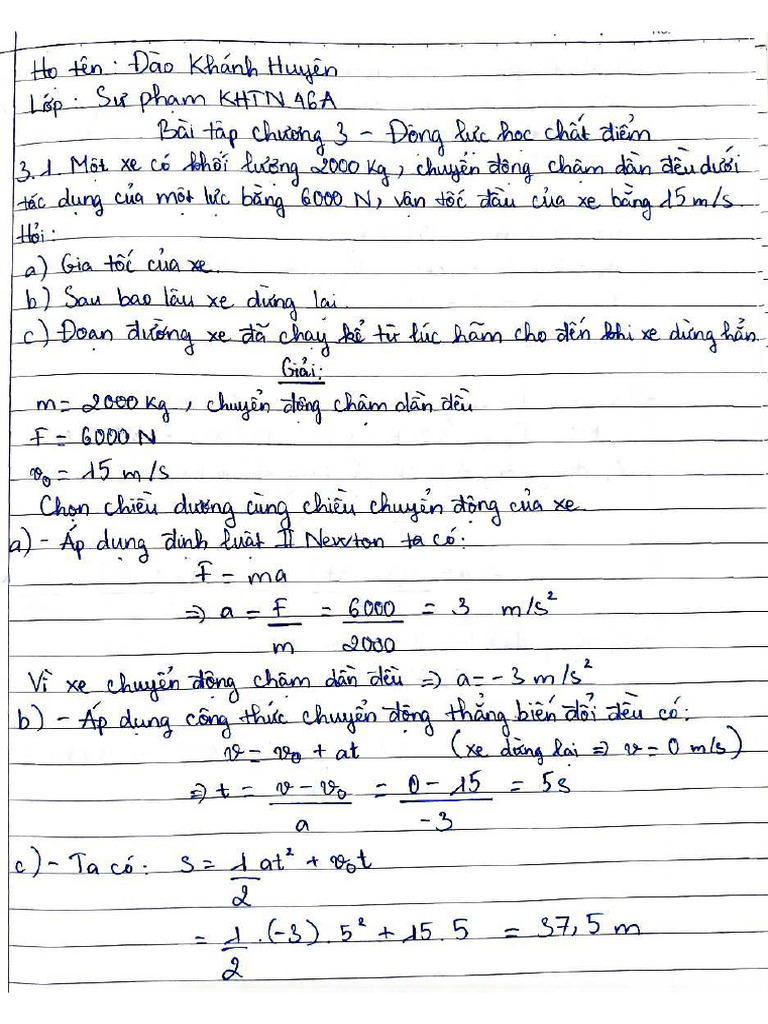 Họ tên: Đào Khánh Huyền
Lớp: Sư phạm KHTN 46A
Bài tập chương 3 - Động lực học chất điểm
3.1. Một xe có khối lượng 2000 kg, chuyển động chậm dần đều dưới
tác dụng của một lực bằng 6000 N, vận tốc đầu của xe bằng 15 m/s.
Hỏi:
a) Gia tốc của xe.
b) Sau bao lâu xe dừng lại.
c) Đoạn đường xe đã chạy kể từ lúc hãm cho đến khi xe dừng hẳn.
Giải:
m = 2000 kg, chuyển động chậm dần đều
F = 6000 N
v₀ = 15 m/s
Chọn chiều dương cùng chiều chuyển động của xe.
a) - Áp dụng định luật II Newton ta có:
F = ma
⇒ a = F/m = 6000/2000 = 3 m/s²
Vì xe chuyển động chậm dần đều ⇒ a = -3 m/s²
b) - Áp dụng công thức chuyển động thẳng biến đổi đều có:
v = v₀ + at (xe dừng lại ⇒ v = 0 m/s)
⇒ t = (v - v₀)/a = (0 - 15)/-3 = 5s
c) - Ta có: S = 1/2 at² + v₀t
= 1/2 .(-3). 5² + 15.5 = 37,5 m